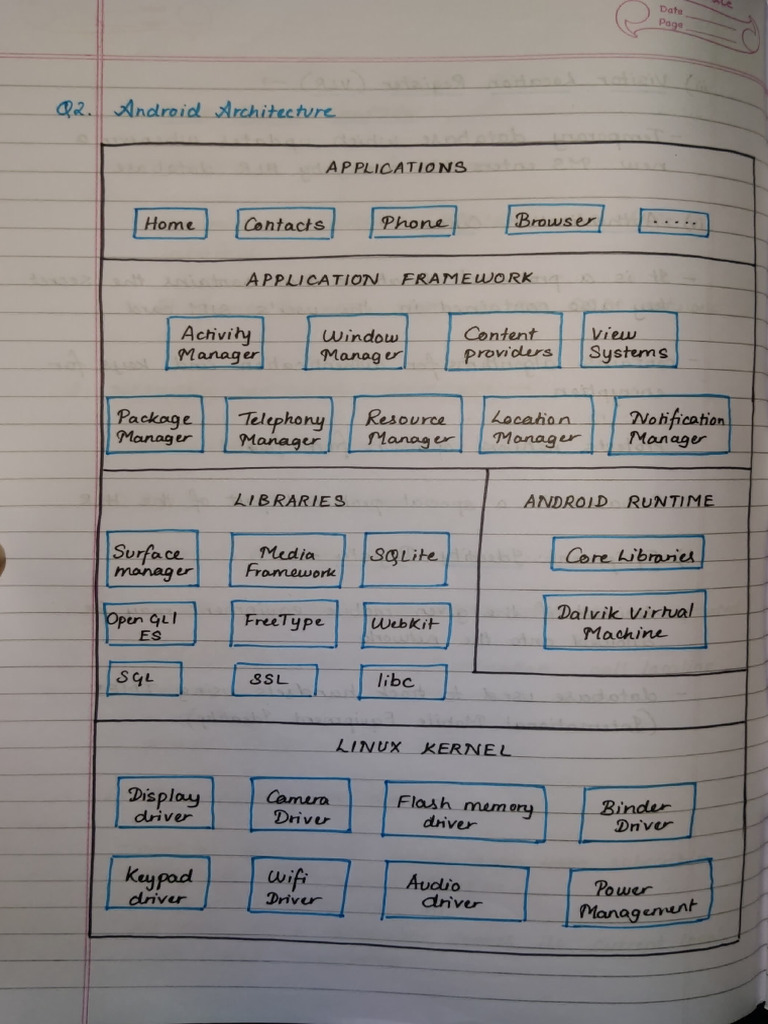 Date
Page
Q2. Android Architecture
APPLICATIONS
Home Contacts Phone Browser .....
APPLICATION FRAMEWORK
Activity Manager
Window Manager
Content providers
View Systems
Package Manager
Telephony Manager
Resource Manager
Location Manager
Notification Manager
LIBRARIES
Surface manager
Media Framework
SQLite
Open GLI ES
FreeType
WebKit
SGL
SSL
libc
ANDROID RUNTIME
Core Libraries
Dalvik Virtual Machine
LINUX KERNEL
Display driver
Camera Driver
Flash memory driver
Binder Driver
Keypad driver
Wifi Driver
Audio driver
Power Management